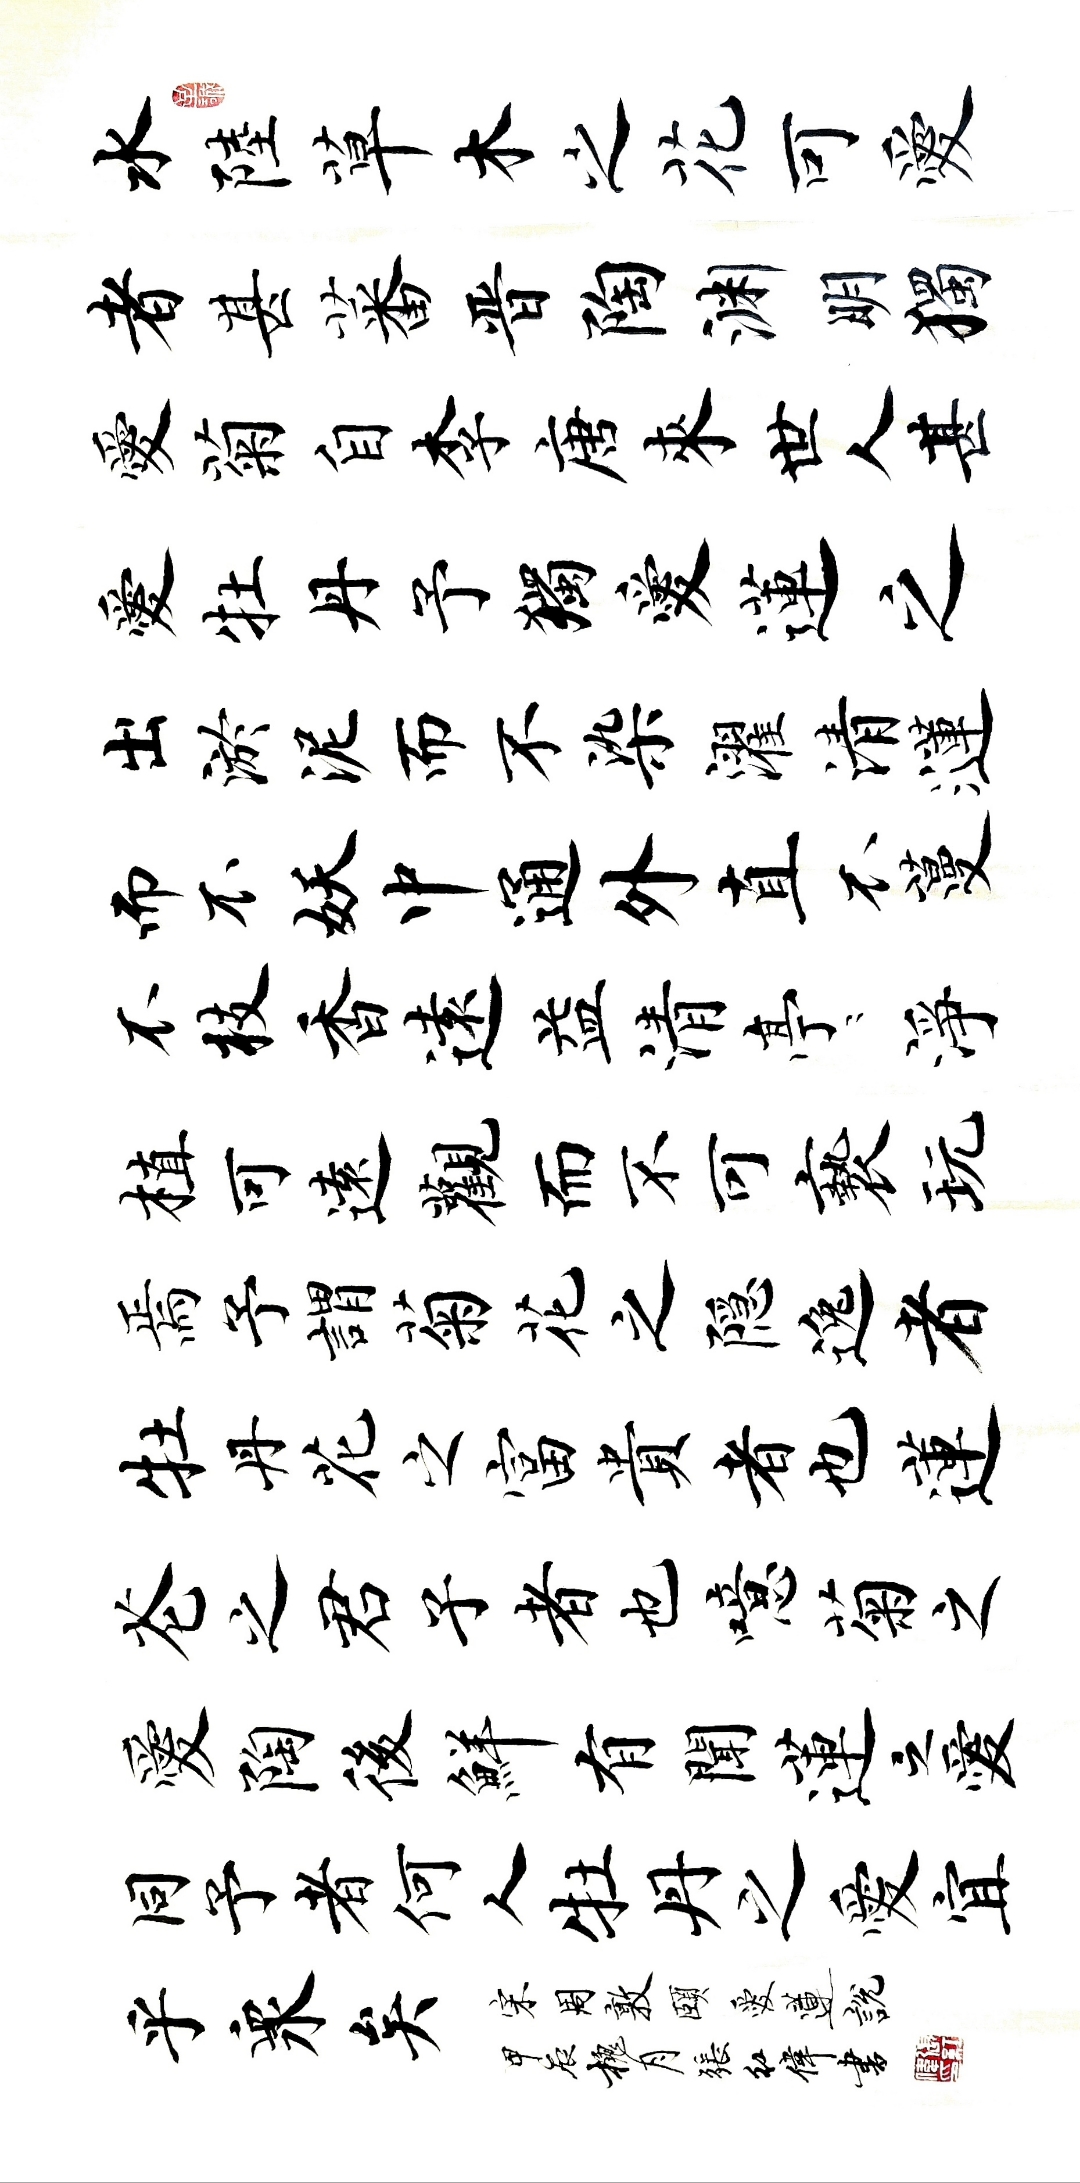 水陸草木之花可愛
者甚蕃晋陶渊明獨
愛菊自李唐来世人甚
愛牡丹予獨愛蓮之
出淤泥而不染濯清漣
而不妖中通外直不蔓
不枝香遠益清亭〻淨
植可遠觀而不可褻玩
焉予謂菊花之隱逸者
牡丹花之富貴者也蓮
花之君子者也噫菊之
愛陶後鮮有聞蓮之愛
同予者何人牡丹之愛宜
乎衆矣
宋周敦頤愛蓮說
甲辰槐月張偉書